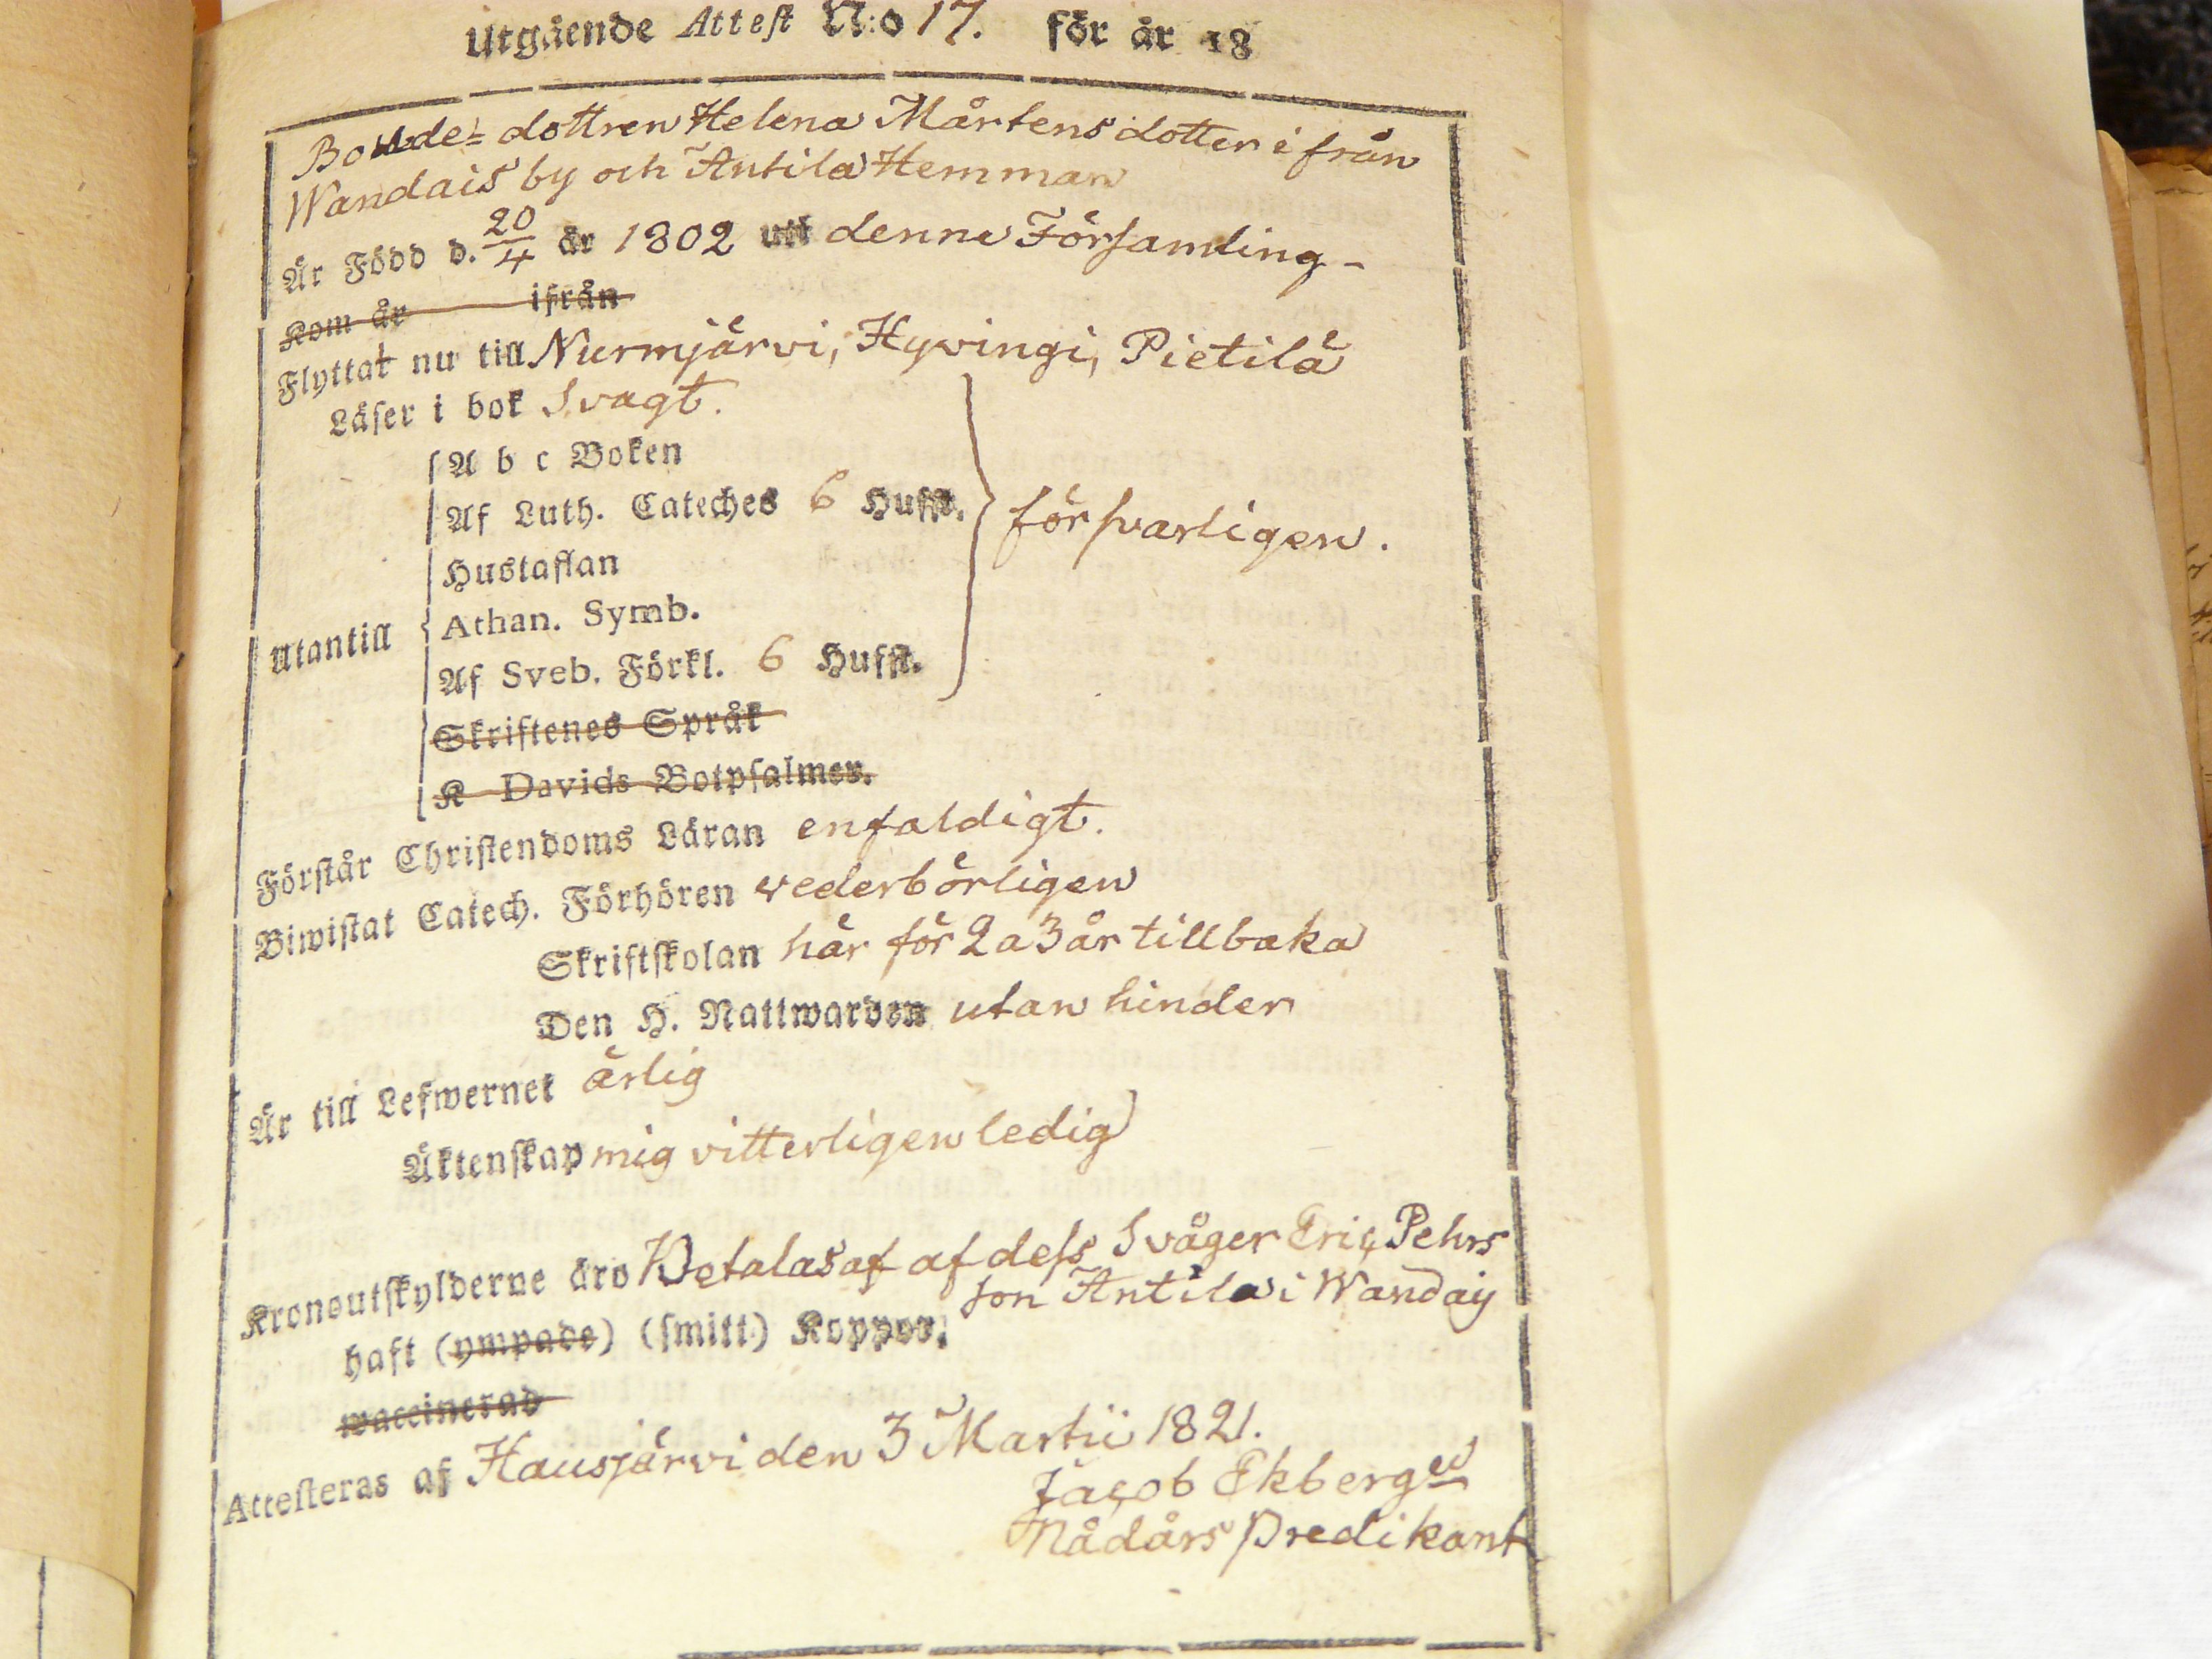 Utgående Attest N:o 17. för år 18
Bonde- dottren Helena Mårtens dotter ifrån
Wandais by och Antila Hemman
Är Född d. 20/4 år 1802 uti denne Församling -
Kom år ifrån
Flyttat nu till Nurmjärvi, Hyvingi, Pietilä
Läser i bok Svagt.
A b c Boken
Af Luth. Cateches 6 Hufst.
försvarligen.
Hustaflan
Athan. Symb.
Utantill
Af Sveb. Förkl. 6 Hufst.
Skriftenes Språk
K Davids Botpsalmer.
Förstår Christendoms Läran enfaldigt.
Biwistat Catech. Förhören vederbörligen
Skriftskolan här för 2 a 3 år tillbaka
Den H. Nattwarden utan hinder
Är till Lefwernet ärlig
Äktenskap mig vitterligen ledig
Kronoutskylderne äro Betalas af af dess Svåger Eric Pehrs
son Antila i Wandais
haft (ympade) (smitt) Koppor.
waccinerad
Attesteras af Hausjärvi den 3 Martii 1821.
Jacob Ekberg
Nådårs Predikant